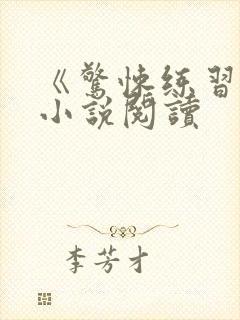 《驚悚练習
小説閱讀
李芳才